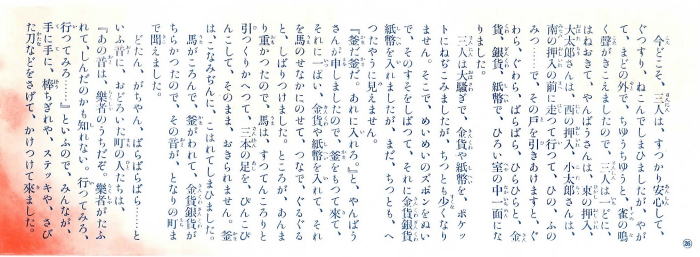 今どこそ、三人は、すつかり安心して、
ぐつすり、ねこんでしまひましたが、やが
て、まどの外で、ちゆうちゆうと、雀の鳴
く聲がきこえましたので、三人は一どに、
はねおきて、やんばうさんは、東の押入、
大太郎さんは、西の押入、小太郎さんは、
南の押入の前に走つて行つて、ひの、ふの
みつ……で、その戸を引きあけますと、ぐ
わら、ぐわら、ばらばら、ひらひらと、金
貨、銀貨、紙幣で、ひろい室の中一面にな
りました。
三人は大騒ぎで、金貨や紙幣を、ポケッ
トにねぢこみましたが、ちつとも少くなり
ません。そこで、めいめいのズボンをぬい
で、そのすそをしばつて、それに金貨銀貨
紙幣を入れましたが、まだ、ちつとも、へ
つたやうに見えません。
『釜だ釜だ。あれに入れろ。』と、やんばう
さんが申しましたので、釜をもつて來て、
それに一ぱい、金貨や紙幣を入れて、それ
を馬のせなかにのせて、つなで、ぐるぐる
と、しばりつけました。ところが、あんま
り重かつたので、馬は、すつてんころりと
引つくりかへつて、三本の足を、ぴんこぴ
んこして、そのまま、おきられません。釜
は、こなみぢんに、こはれてしまひました。
馬がころんで、釜がわれて、金貨銀貨が
ちらかつたので、その音が、となりの町ま
で聞えました。
どたん、がちやん、ばらばらばら……と
いふ音に、おどろいた町の人たちは、
『あの音は、樂者のうちだぞ。樂者がたふ
れて、しんだのかも知れない。行つてみろ、
行つてみろ……』といふので、みんなが、
手に手に、棒ちぎれや、ステッキや、さび
た刀などをさげて、かけつけて來ました。
26